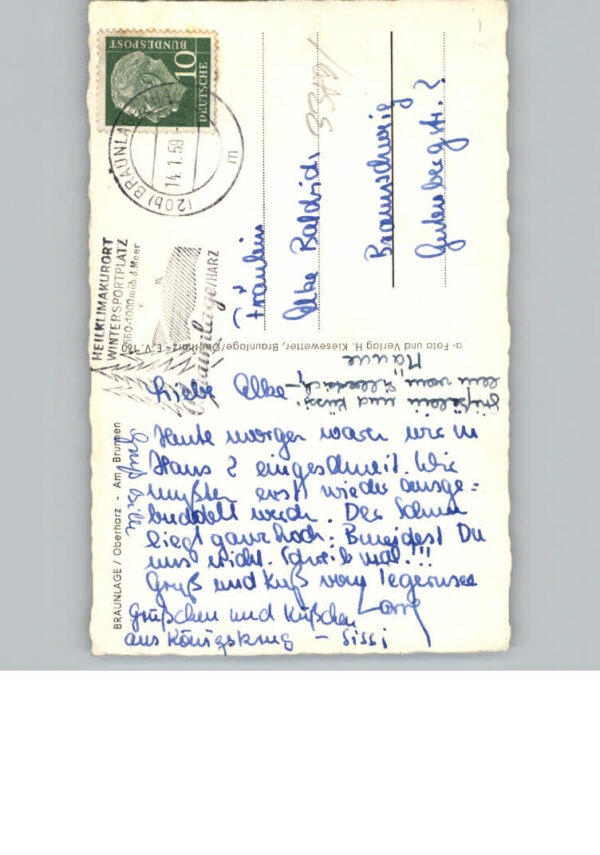 DEUTSCHE
BUNDESPOST
10
(20b) BRAUNLAGE
14.1.59
m
HEILKLIMAKURORT
WINTERSPORTPLATZ
560-1000 m üb. d. Meer
Braunlage/HARZ
3381
Fräulein
Elke
Braunschweig
Gutenbergstr. 2
a- Foto und Verlag H. Kiesewetter, Braunlage/Oberharz - E. V.
BRAUNLAGE / Oberharz - Am Brunnen
Liebe Elke –,
Heute morgen waren wir in
Haus 2 eingeschneit. Wir
mußten erst wieder ausge=
buddelt werden. Der Schnee
liegt ganz hoch. Beneidest Du
uns nicht. Schreib mal!!!
Gruß und Kuß vom
Grüßchen und Küßchen
aus Königskrug – Sissi
Gruß
Grüßelein und Küssi-
lein vom